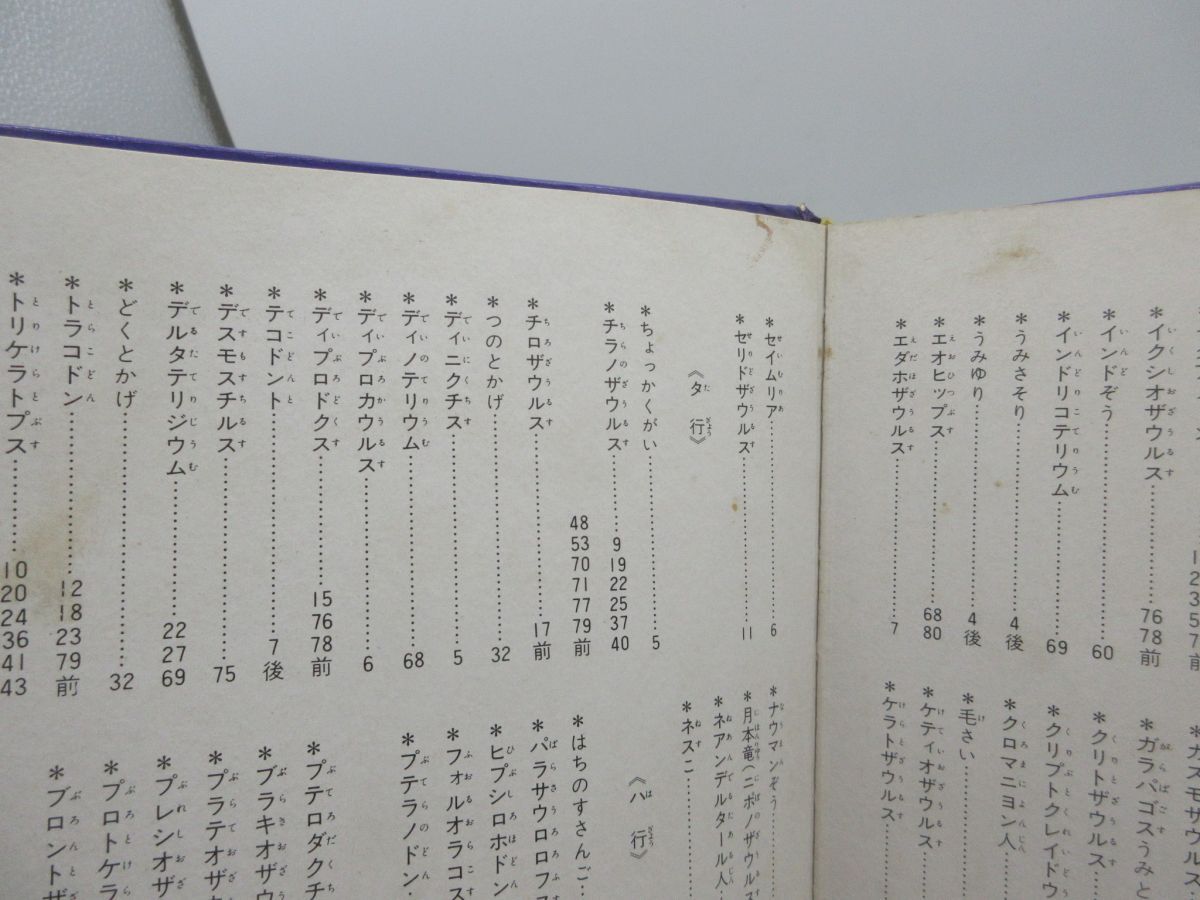 ＊イクシオザウルス……………76 78前
＊インドぞう……………60
＊インドリコテリウム……………69
＊うみさそり……………4後
＊うみゆり……………4後
＊エオヒップス……………68 80
＊エダホザウルス……………7
ガラパゴスうみと
＊クリトザウルス
＊クリプトクレイドウ
＊クロマニヨン人
＊毛さい
＊ケティオザウルス
＊ケラトザウルス
＊セイムリア……………6
＊セリドザウルス……………11
《タ行》
＊ちょっかくがい……………5
＊チラノザウルス……………9 19 22 25 37 40
48 53 70 71 77 79前
＊チロザウルス……………17前
＊つのとかげ……………32
＊ディニクチス……………5
＊ディノテリウム……………68
＊ディプロカウルス……………6
＊ディプロドクス……………15 76 78前
＊テコドント……………7後
＊デスモスチルス……………75
＊デルタテリジウム……………22 27 69
＊どくとかげ……………32
＊トラコドン……………12 18 23 79前
＊トリケラトプス……………10 20 24 36 41 43
＊ナウマンぞう
＊日本竜(ニッポノザウルス
＊ネアンデルタール人
＊ネスこ
《ハ行》
＊はちのすさんご
＊パラサウロロフ
＊ヒプシロホドン
＊フォルオラコス
＊プテラノドン
＊プテロダクチ
＊ブラキオザウ
＊プラテオザウ
＊プレシオザ
＊プロトケラ
＊ブロントザ